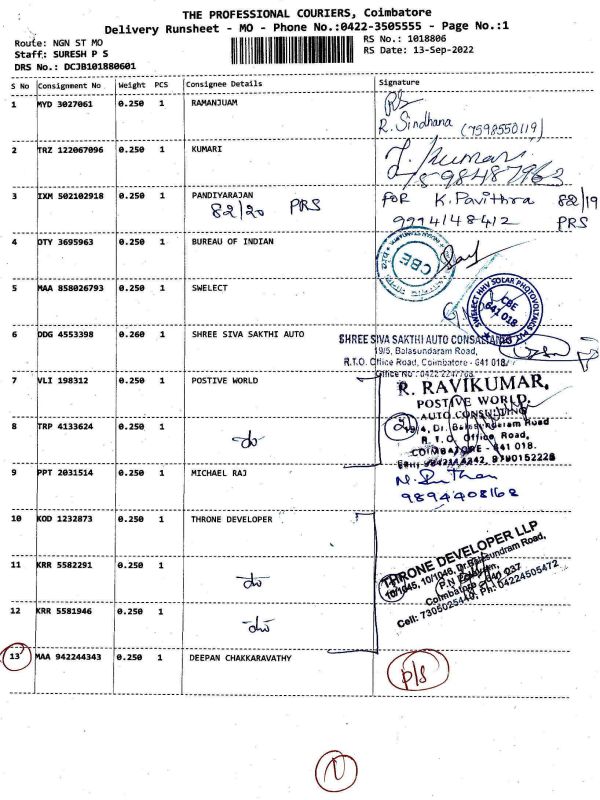 THE PROFESSIONAL COURIERS, Coimbatore
Delivery Runsheet - MO - Phone No.:0422-3505555 - Page No.:1
Route: NGN ST MO
RS No.: 1018806
Staff: SURESH P S
RS Date: 13-Sep-2022
DRS No.: DCJB101880601
S No Consignment No Weight PCS Consignee Details Signature
1 MYD 3027061 0.250 1 RAMANJUAM
R. Sindhana (7598550119)
2 TRZ 122067096 0.250 1 KUMARI
3 IXM 502102918 0.250 1 PANDIYARAJAN
82/20 PRS
FOR K. Pavithra 82/19
9994148412 PRS
4 OTY 3695963 0.250 1 BUREAU OF INDIAN
CBE
5 MAA 858026793 0.250 1 SWELECT
SWELECT HHV SOLAR PHOTOVOLTAICS
CBE
641 018
6 DDG 4553398 0.260 1 SHREE SIVA SAKTHI AUTO
SHREE SIVA SAKTHI AUTO CONSULTANTS
19/5, Balasundaram Road,
R.T.O. Office Road, Coimbatore - 641 018
Office No
7 VLI 198312 0.250 1 POSTIVE WORLD
R. RAVIKUMAR,
POSTIVE WORLD,
AUTO CONSULTING
Dr. Balasundaram Road
R. T. O. Office Road,
COIMBATORE - 641 018.
9790152228
8 TRP 4133624 0.250 1
9 PPT 2031514 0.250 1 MICHAEL RAJ
9894408162
10 KOD 1232873 0.250 1 THRONE DEVELOPER
THRONE DEVELOPER LLP
10/1045, 10/1046, Dr.Balasundram Road,
Coimbatore - 641 037
Ph: 04224505472
11 KRR 5582291 0.250 1
12 KRR 5581946 0.250 1
13 MAA 942244343 0.250 1 DEEPAN CHAKKARAVATHY
P/S